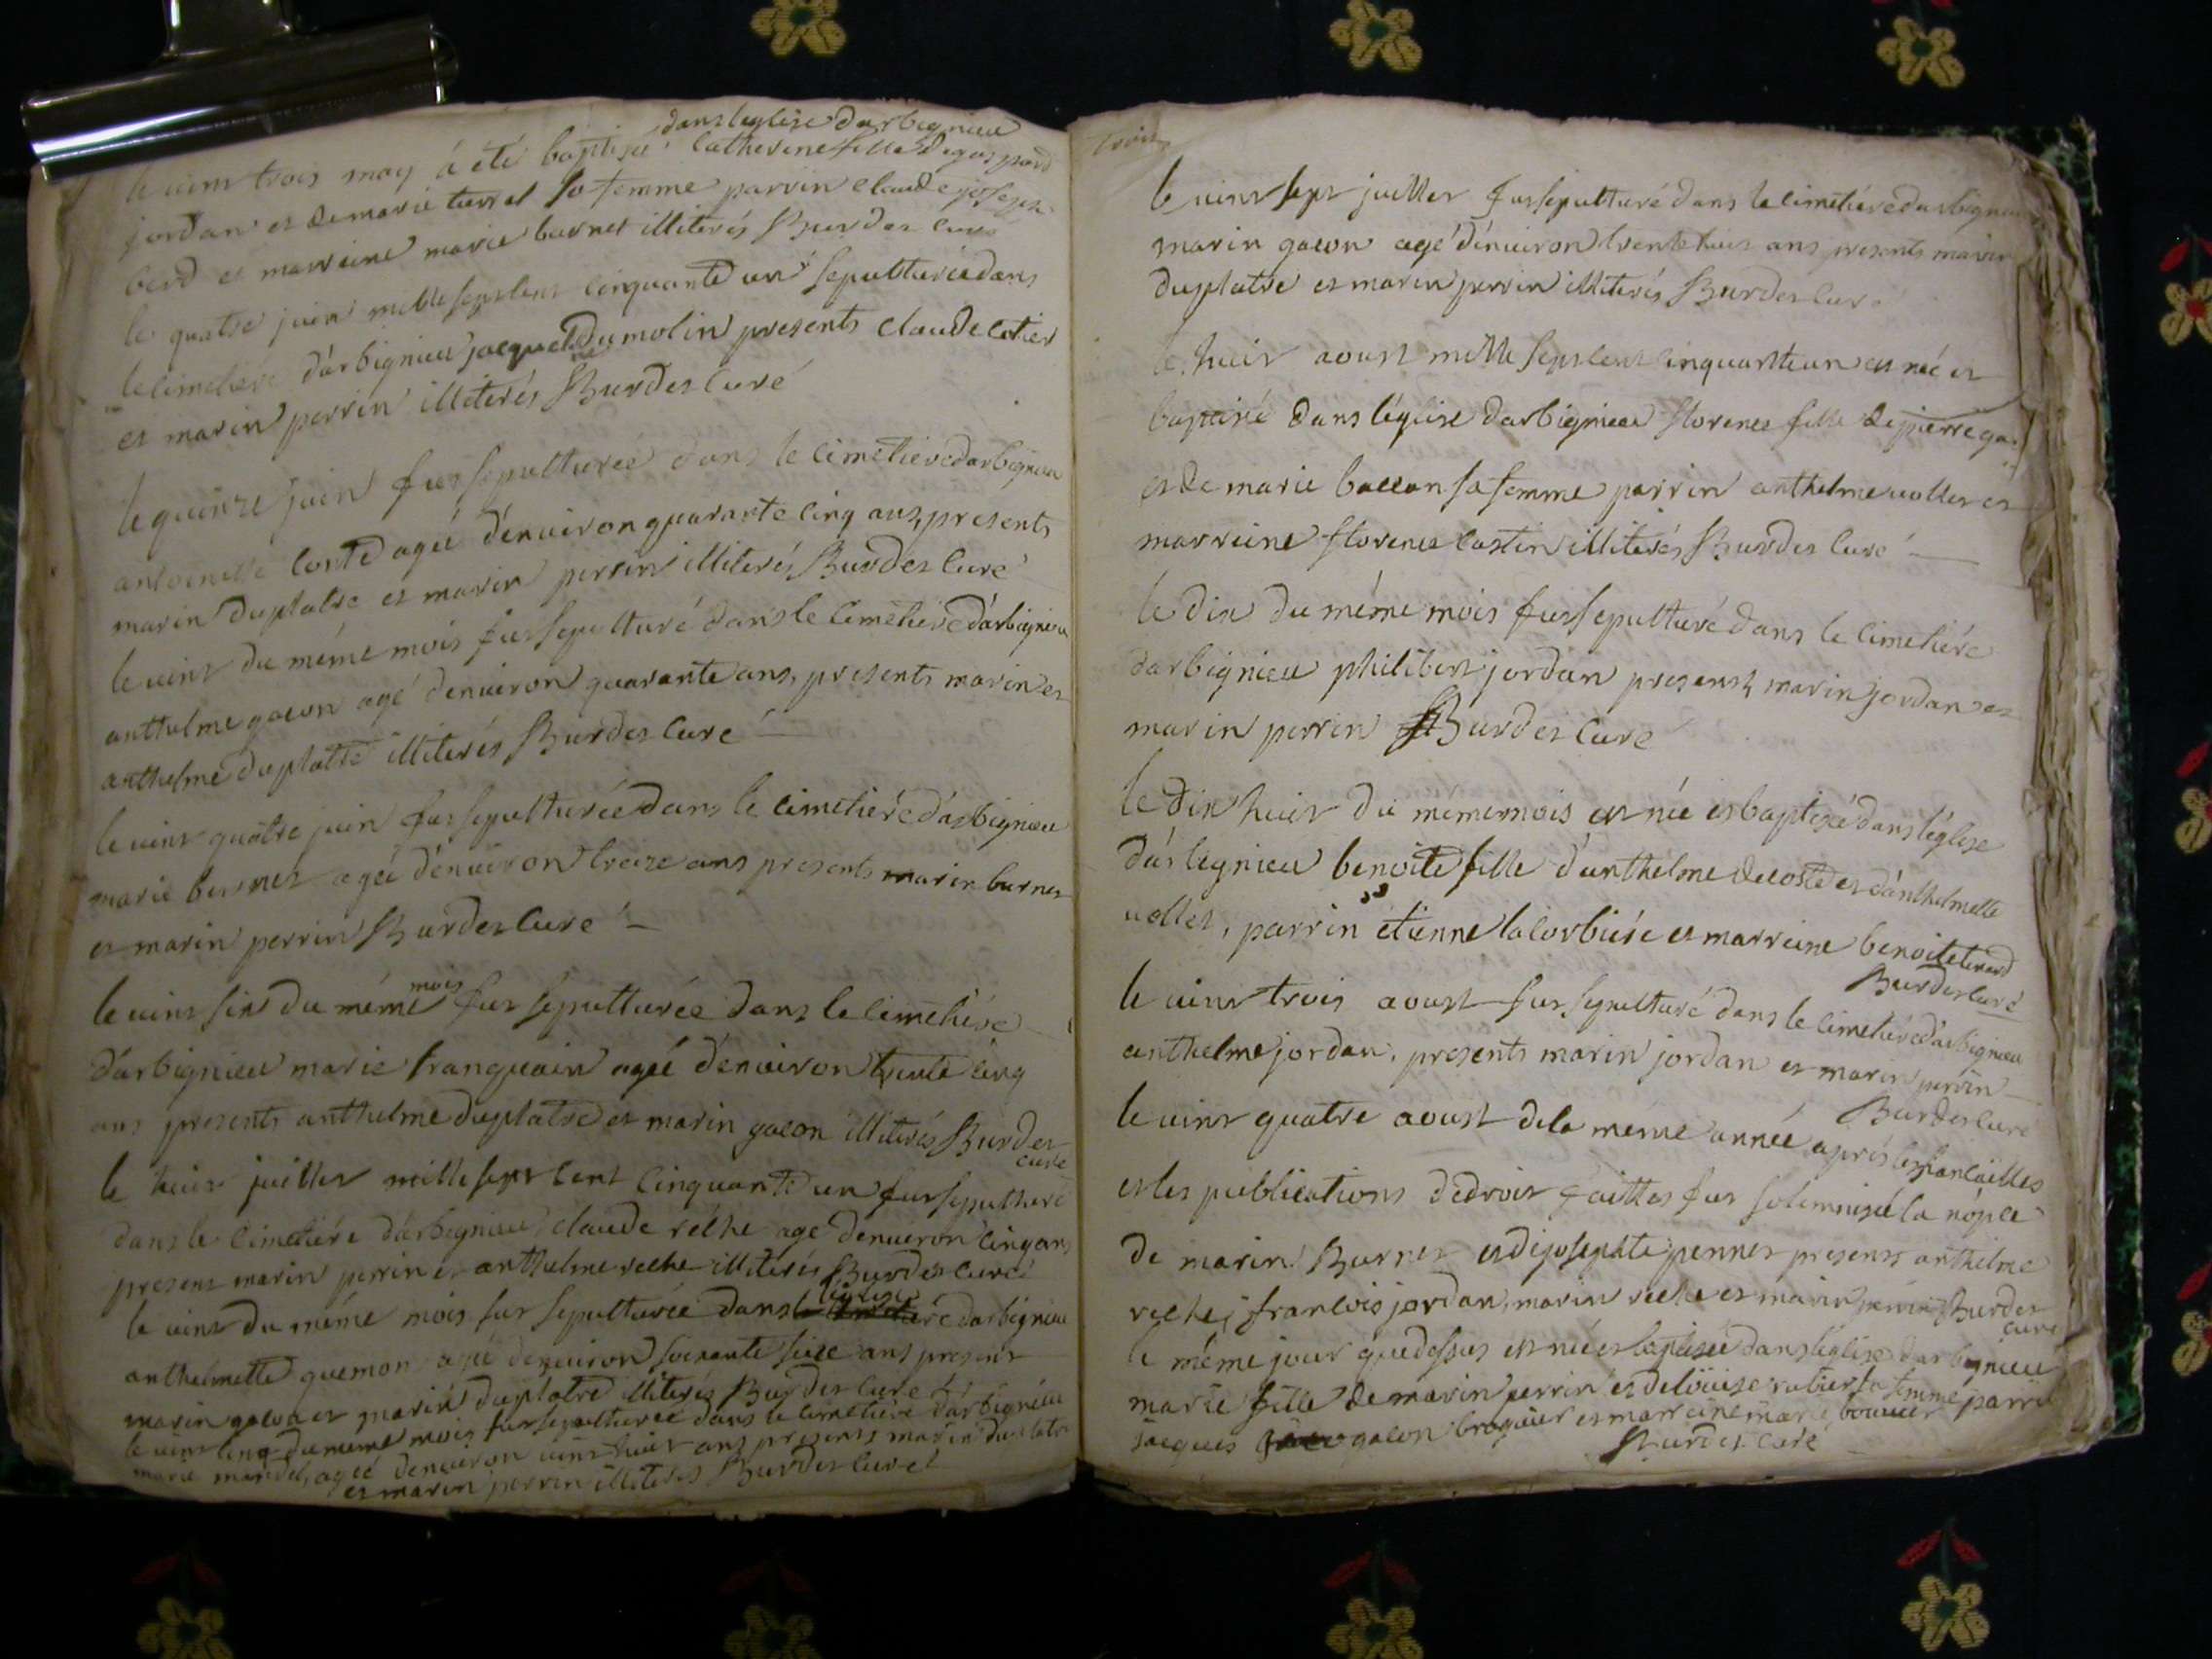 dans leglise darbignieu
le vint trois may à été baptisée Catherine fille de gaspard
jordan et de marie turrel sa femme parrin claude joseph
berd et marreine marie burnet illiterés Burdet curé
le quatre juin mille sept cent cinquante un sepulturée dans
le cimetiere d'arbignieu jacqueline dumolin presents claude
et marin perrin illiterés Burdet Curé
le quinze juin fut sepulturée dans le cimetiere darbignieu
antoinette Conte agée d'enuiron quarante cinq ans, presents
marin duplatre et marin perrin illiterés Burdet Curé
le vint du méme mois fut sepulturé dans le cimetiere d'arbignieu
anthelme gacon agé denuiron quarante ans, presents marin et
anthelme duplatre illiterés Burdet Curé
le vint quatre juin fut sepulturée dans le cimetiére d'arbignieu
marie burnet agée d'enuiron treize ans presents marin burnet
et marin perrin Burdet Curé
le vint six du méme mois fut sépulturée dans le cimetiére
d'arbignieu marie franquain agée d'enuiron trente cinq
ans presents anthelme duplatre et marin gacon illiterés Burdet
curé
le huit juillet mille sept cent cinquante un fut sepulturé
dans le cimetiére d'arbignieu claude réche agé denuiron cinq ans
present marin perrin et anthelme reche illiterés Burdet curé
le vint du méme mois fut sepulturée dans l'eglise darbignieu
anthelmette quemon agée denuiron soixante seize ans present
marin gacon et marin duplatre illiterés Burdet Curé
le vint cinq du méme mois fut sepulturée dans le cimetiére d'arbignieu
marie agée denuiron vint huit ans presents marin duplatre
et marin perrin illiterés Burdet Curé
trois
le vint sept juillet fut sepulturé dans le cimetiére darbignieu
marin gacon agé d'énuiron trente huit ans presents marin
duplatre et marin perrin illiterés Burdet Curé
le huit aoust mille sept cent cinquante un est née et
baptisée dans l'église darbignieu florence fille de pierre
et de marie ballan sa femme parrin anthelme uollet et
marreine florence Castin illiterés Burdet Curé
le dix du méme mois fut sepulturé dans le cimetiére
darbignieu philibert jordan presents marin jordan et
marin perrin Burdet Curé
le dix huit du méme mois est née et baptisée dans l'église
d'arbignieu benoite fille d'anthelme decoste et d'anthelmette
uollet, parrin etienne lacorbiére et marreine benoite
Burdet Curé
le vint trois aoust fut sepulturé dans le cimetiére d'arbignieu
anthelme jordan, presents marin jordan et marin perrin
Burdet Curé
le vint quatre aoust de la méme année aprés les fiancailles
et les publications de droit faittes fut solemnisée la nópce
de marin Burnet et de josephte pennet presents anthelme
reche, francois jordan, marin reche et marin perrin Burdet
curé
le méme jour que dessus est née et baptisée dans l'église darbignieu
marie fille de marin perrin et de loüise rubier sa femme parrin
jacques gacon et marreine marie bouuier
Burdet Curé